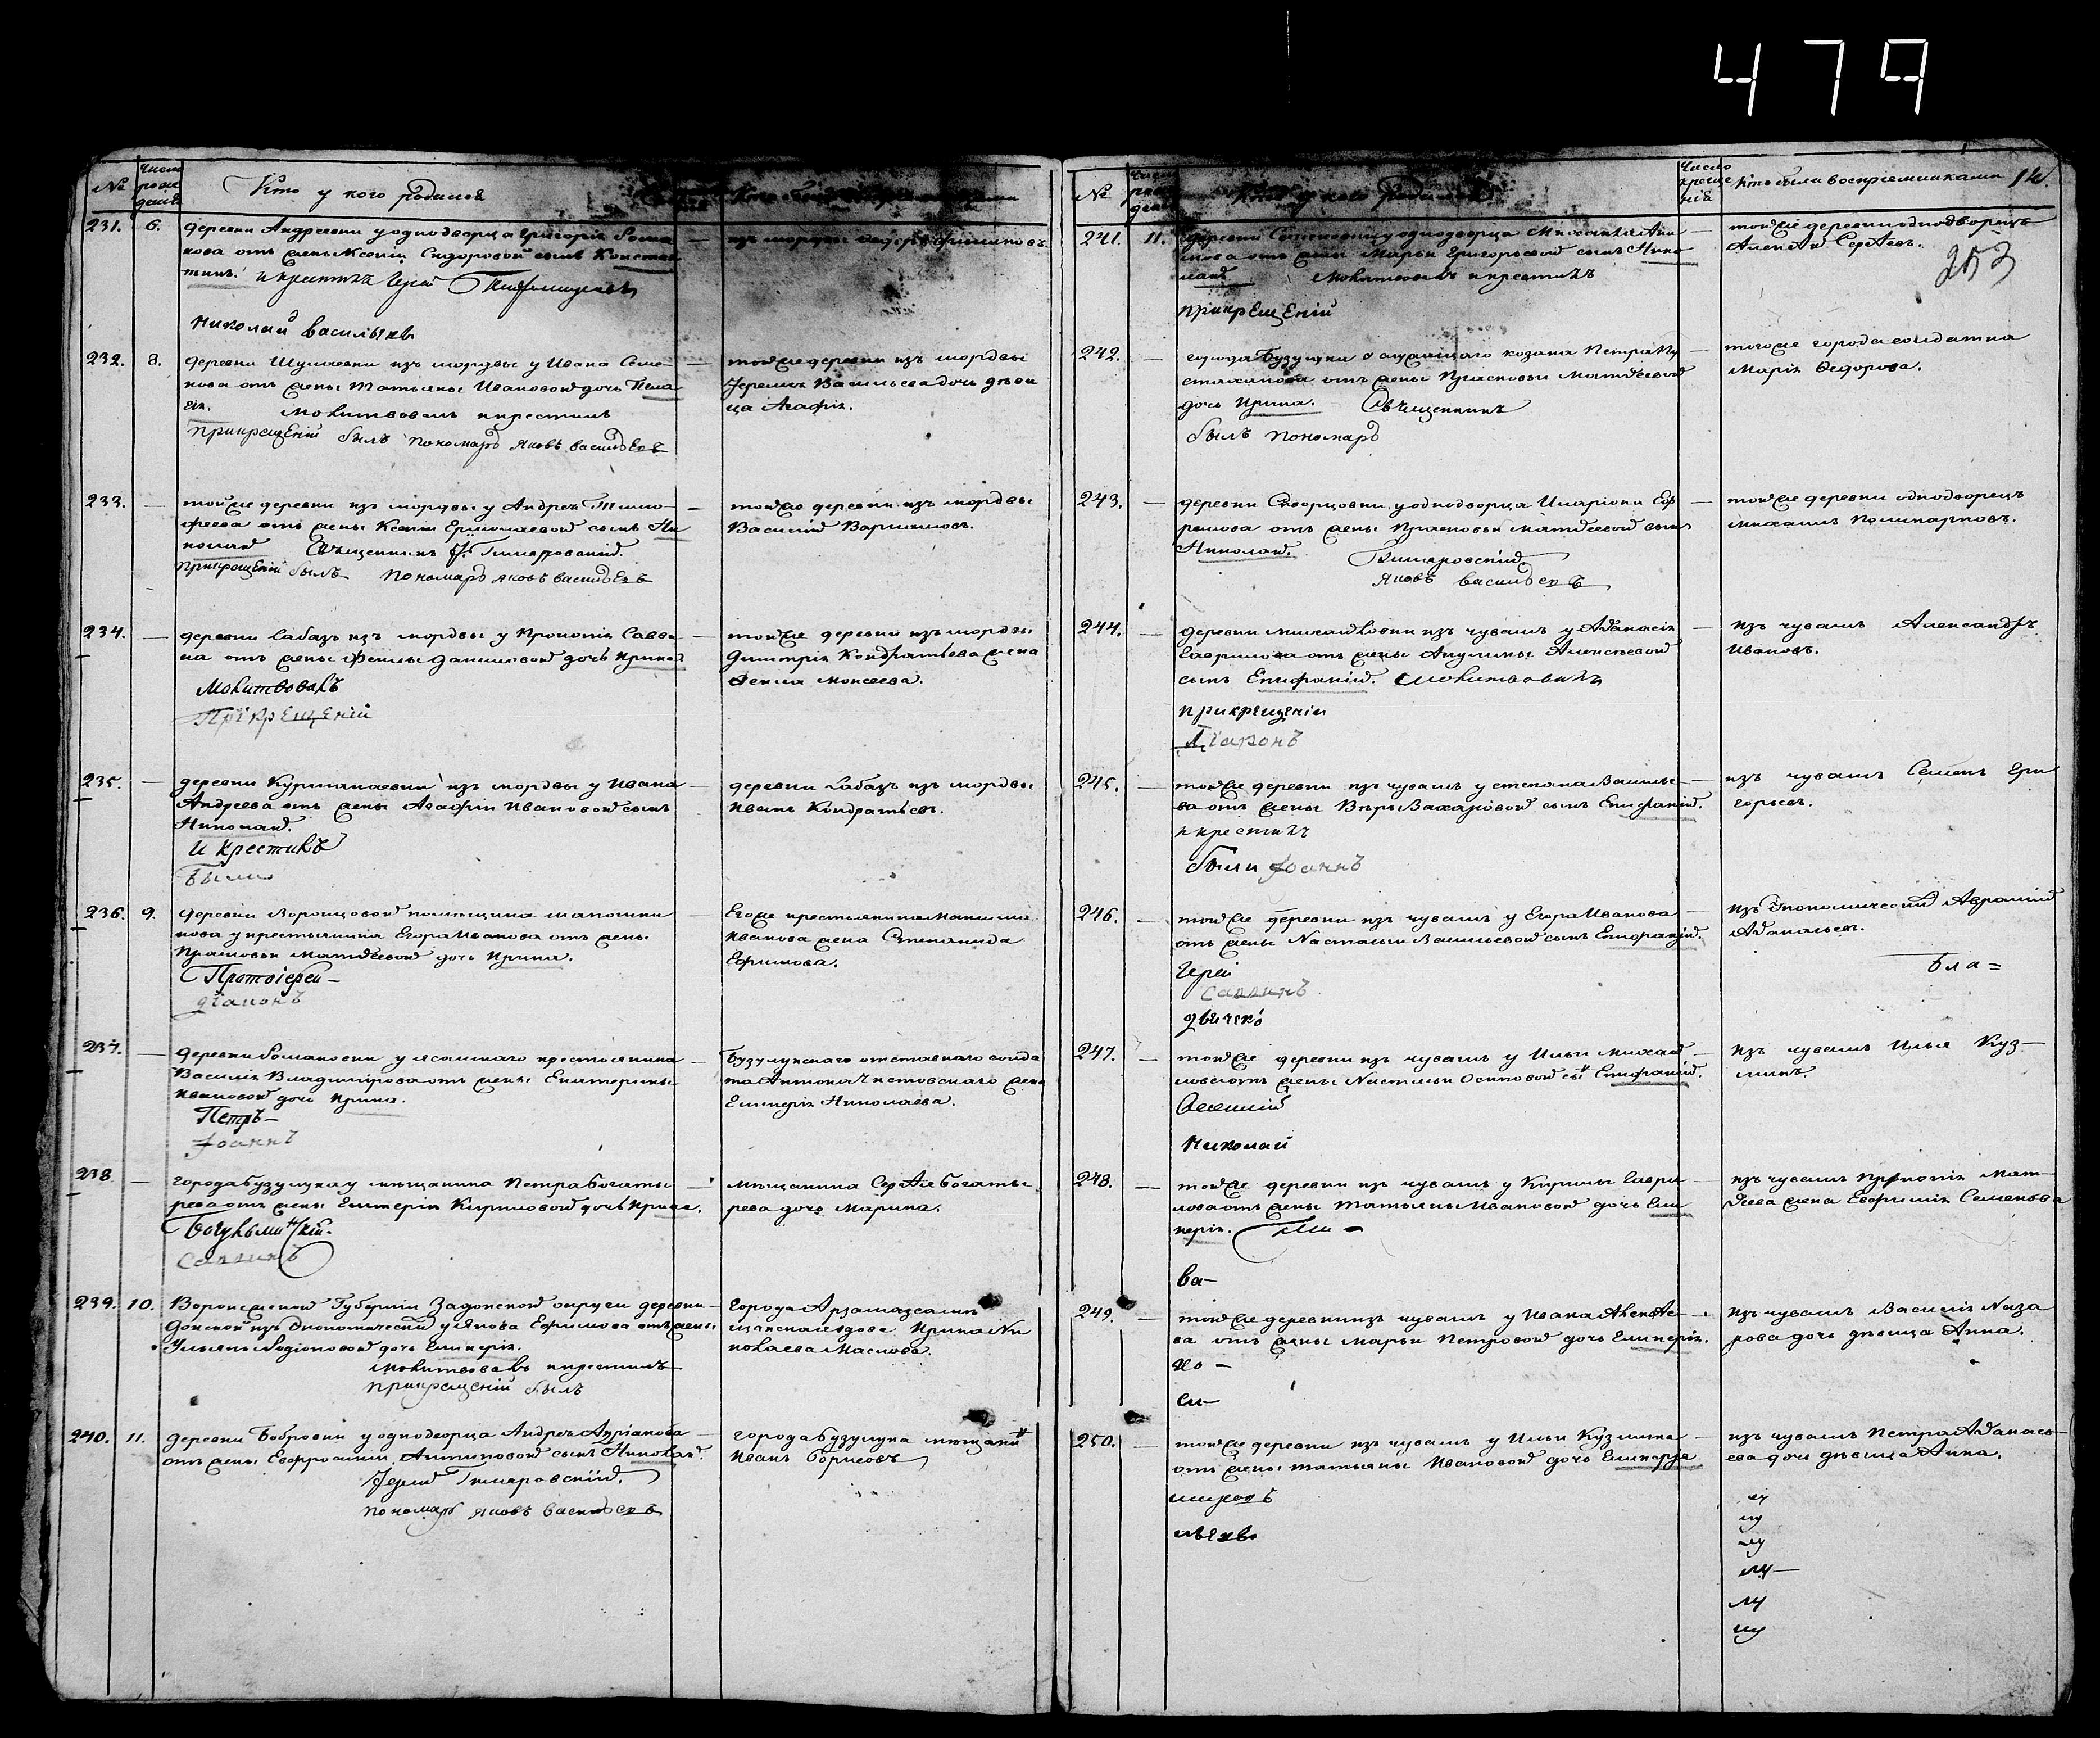 479
№
Число рождения
Кто у кого родился
231. 6. деревни Андреевки у однодворца Григорія Рома
нова отъ жены Ксеніи Сидоровой сынъ Констан
тинъ. и крестилъ Іерей
Николай Васильевъ
изъ мордвы Федоръ Филиповъ.
232. 8. деревни Шулаевки изъ мордвы у Ивана Семе-
нова отъ жены Татьяны Ивановой дочь Пела
гія. Молитвовалъ и крестилъ
При крещеніи былъ пономарь Яковъ Васильевъ
тойже деревни изъ мордвы
Васильева дочь дѣви
ца Агафія.
233. — тойже деревни изъ мордвы у Андрея Тимо
феева отъ жены Ксеніи Ермолаевой сынъ Ни
колай Священникъ
При крещеніи былъ Пономарь Яковъ Васильевъ
тойже деревни изъ мордвы
Василій Варламовъ.
234. — деревни Сабазъ изъ мордвы у Прокопія Савве
на отъ жены Феклы Даниловой дочь Ирина
Молитвовалъ
При крещеніи
тойже деревни изъ мордвы
Димитрія Кондратьева жена
Фекла Моисеева.
235. — деревни изъ мордвы у Ивана
Андреева отъ жены Агафіи Ивановой сынъ
Николай.
и крестилъ
Были
деревни Сабазъ изъ мордвы
Иванъ Кондратьевъ.
236. 9. деревни Воронцовой помѣщика
у крестьянина Егора Иванова отъ жены
Прасковьи Матвеевой дочь Ирина.
Протоіерей
діаконъ
Егоже крестьянина Максима
Иванова жена Степанида
Ефимова.
237. — деревни Романовки у ясашнаго крестьянина
Василія Владимірова отъ жены Екатерины
Ивановой дочь Ирина.
Петръ
Іоаннъ
Бузулукскаго отставнаго солда
та Антона Чистовскаго жена
Гликерія Николаева.
238 — города Бузулука у мѣщанина Петра Богаты
рева отъ жены Гликеріи Кириловой дочь Ирина.
мѣщанина Сергѣя Богаты
рева дочь Марина.
239. 10. Воронежской Губерніи Задонской округи деревни
Донской изъ Экономическихъ у Якова Ефимова отъ жены
Ульяны Родіоновой дочь Гликерія.
Молитвовалъ и крестилъ
При крещеніи былъ
Города Арзамаза мѣ
щанская вдова Ирина Ни
колаева Маслова.
240. 11. деревни Бобровки у однодворца Андрея Адріанова
отъ жены Евфросиніи Антиповой сынъ Николай.
Іерей
пономарь Яковъ Васильевъ
города Бузулука мѣщанинъ
Иванъ Борисовъ
№
Кто у кого родился
Число крещенія
Кто были воспріемниками
14.
253
241. 11. деревни у однодворца
отъ жены Марьи Григорьевой сынъ Нико
лай Молитвовалъ и крестилъ
При крещеніи
тойже деревни однодворецъ
Алексѣй Сергѣевъ.
242. — города Бузулука у служащаго козака Петра Пу
отъ жены Прасковьи Матвеевой
дочь Ирина. Священникъ
былъ Пономарь
тогоже города солдатка
Марія Федорова.
243. — деревни Скворцовки у однодворца Иларіона Еф
ремова отъ жены Прасковьи Матвеевой сынъ
Николай.
Яковъ Васильевъ
тойже деревни однодворецъ
Михаилъ Поликарповъ.
244. — деревни Михайловки изъ чувашъ у Афанасія
Гаврилова отъ жены Акулины Алексѣевой
сынъ Епифаній. Молитвовалъ
При крещеніи
Діаконъ
изъ чувашъ Александръ
Ивановъ.
245. — тойже деревни изъ чувашъ у Степана Василье
ва отъ жены Вѣры Захаровой сынъ Епифаній.
и крестилъ
были Іоаннъ
изъ чувашъ Семенъ Гри
горьевъ.
246. — тойже деревни изъ чувашъ у Егора Иванова
отъ жены Настасьи Васильевой сынъ Епифаній.
Іерей
изъ Экономическихъ Аврамій
Афанасьевъ.
Бла=
247. — тойже деревни изъ чувашъ у Ильи Михай
лова отъ жены Настасьи Осиповой сынъ Епифаній.
Николай
изъ чувашъ Илья Куз-
минъ.
248. — тойже деревни изъ чувашъ у Кирилы Гаври
лова отъ жены Татьяны Ивановой дочь Гли
керія.
Ва-
изъ чувашъ Прокопія Мат-
феева жена Евфимія Семенова
249. — тойже деревни изъ чувашъ у Ивана Алексѣе-
ва отъ жены Марьи Петровой дочь Гликерія.
си-
изъ чувашъ Василія Наза
рова дочь дѣвица Анна.
250. — тойже деревни изъ чувашъ у Ильи Кузмина
отъ жены Татьяны Ивановой дочь Гликерія
льевъ
изъ чувашъ Петра Афанась
ева дочь дѣвица Анна.